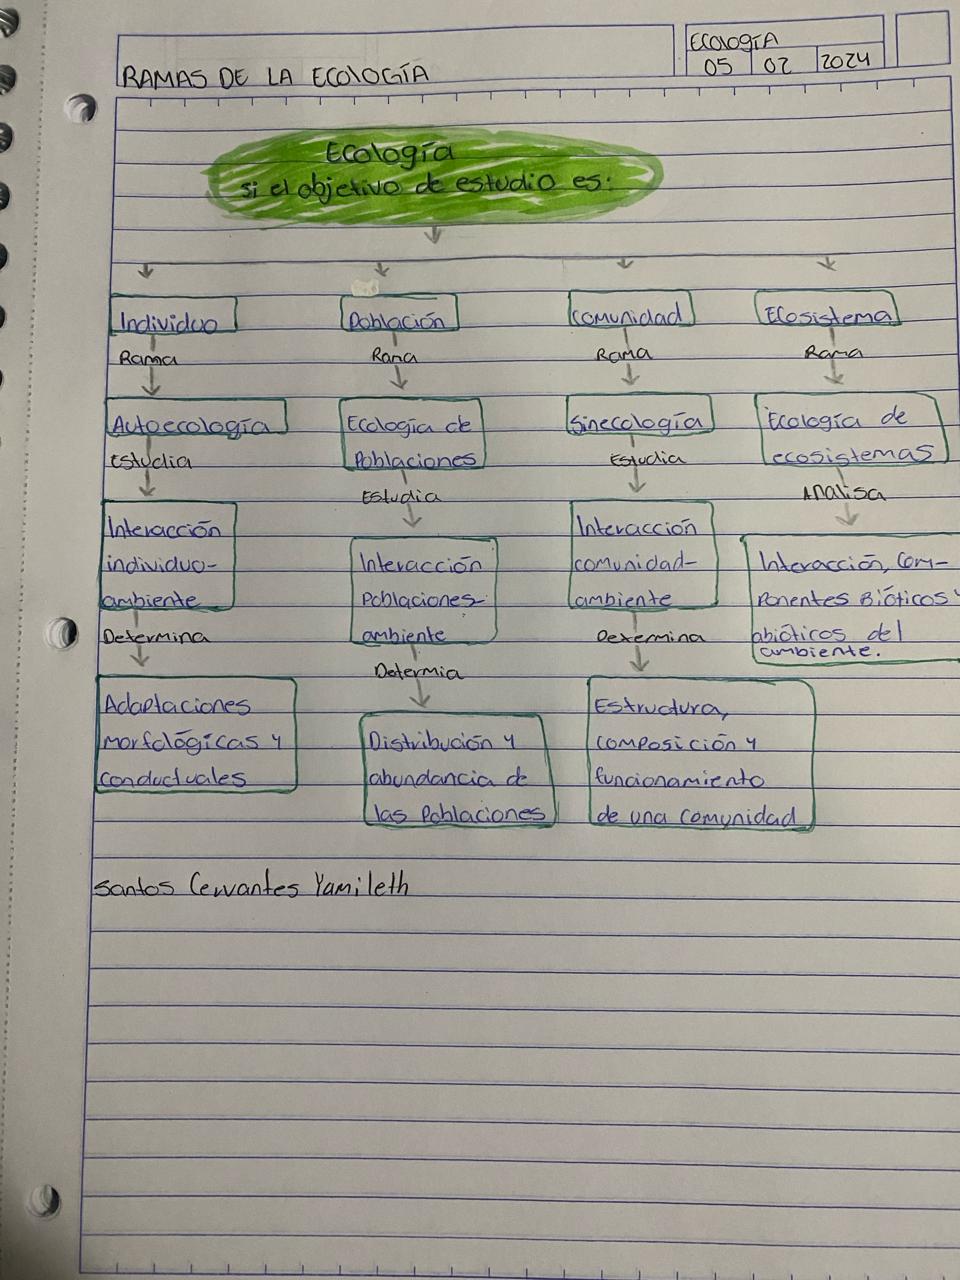 RAMAS DE LA ECOLOGÍA
ECOLOGÍA
05 02 2024
Ecología
si el objetivo de estudio es:
Individuo
Población
Comunidad
Ecosistema
Rama
Rana
Rama
Rama
Autoecología
Ecología de
Poblaciones
Sinecología
Ecología de
ecosistemas
Estudia
Estudia
Estudia
Analisa
Interacción
individuo-
ambiente
Interacción
Poblaciones-
ambiente
Interacción
comunidad-
ambiente
Interacción, com-
ponentes Bióticos y
abióticos del
ambiente.
Determina
Determia
Determina
Adaptaciones
morfológicas y
conductuales
Distribución y
abundancia de
las Poblaciones
Estructura,
composición y
funcionamiento
de una comunidad
Santos Cervantes Yamileth